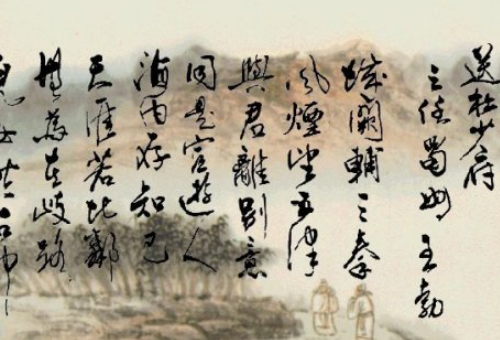 送杜少府
之任蜀州 王勃
城闕輔三秦
風煙望五津
與君離別意
同是宦遊人
海内存知己
天涯若比鄰
無為在歧路